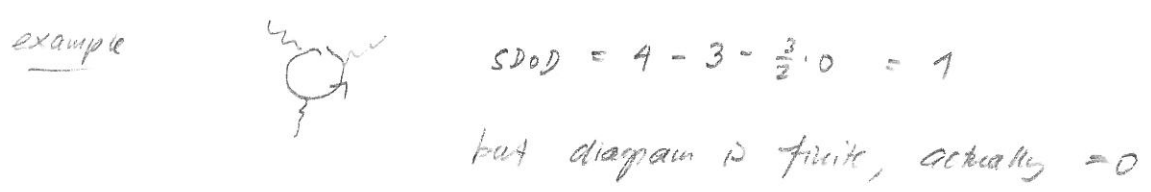 example
SDoD = 4 - 3 - 3/2 · 0 = 1
but diagram is finite, actually = 0